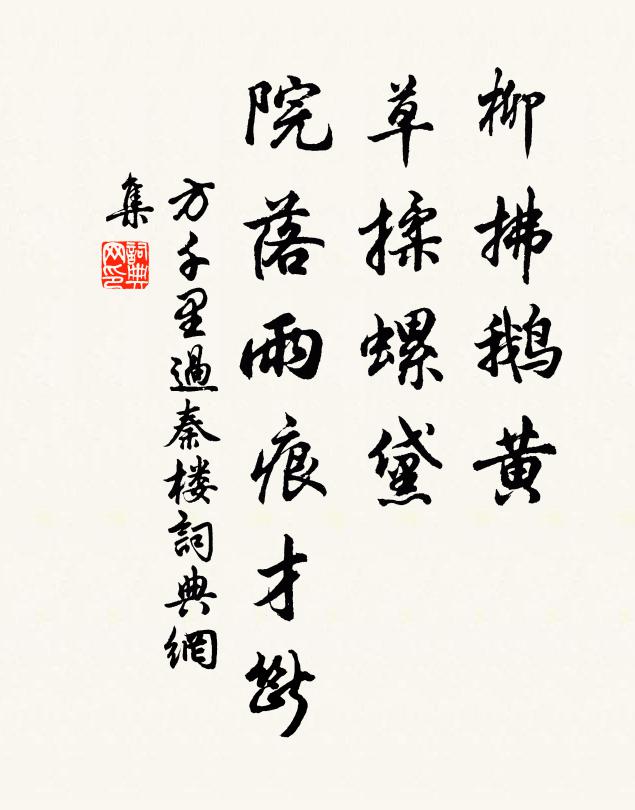 柳拂鹅黄
草揉螺黛
院落雨痕才断
方千里過秦楼詞典網
集
詞典网印